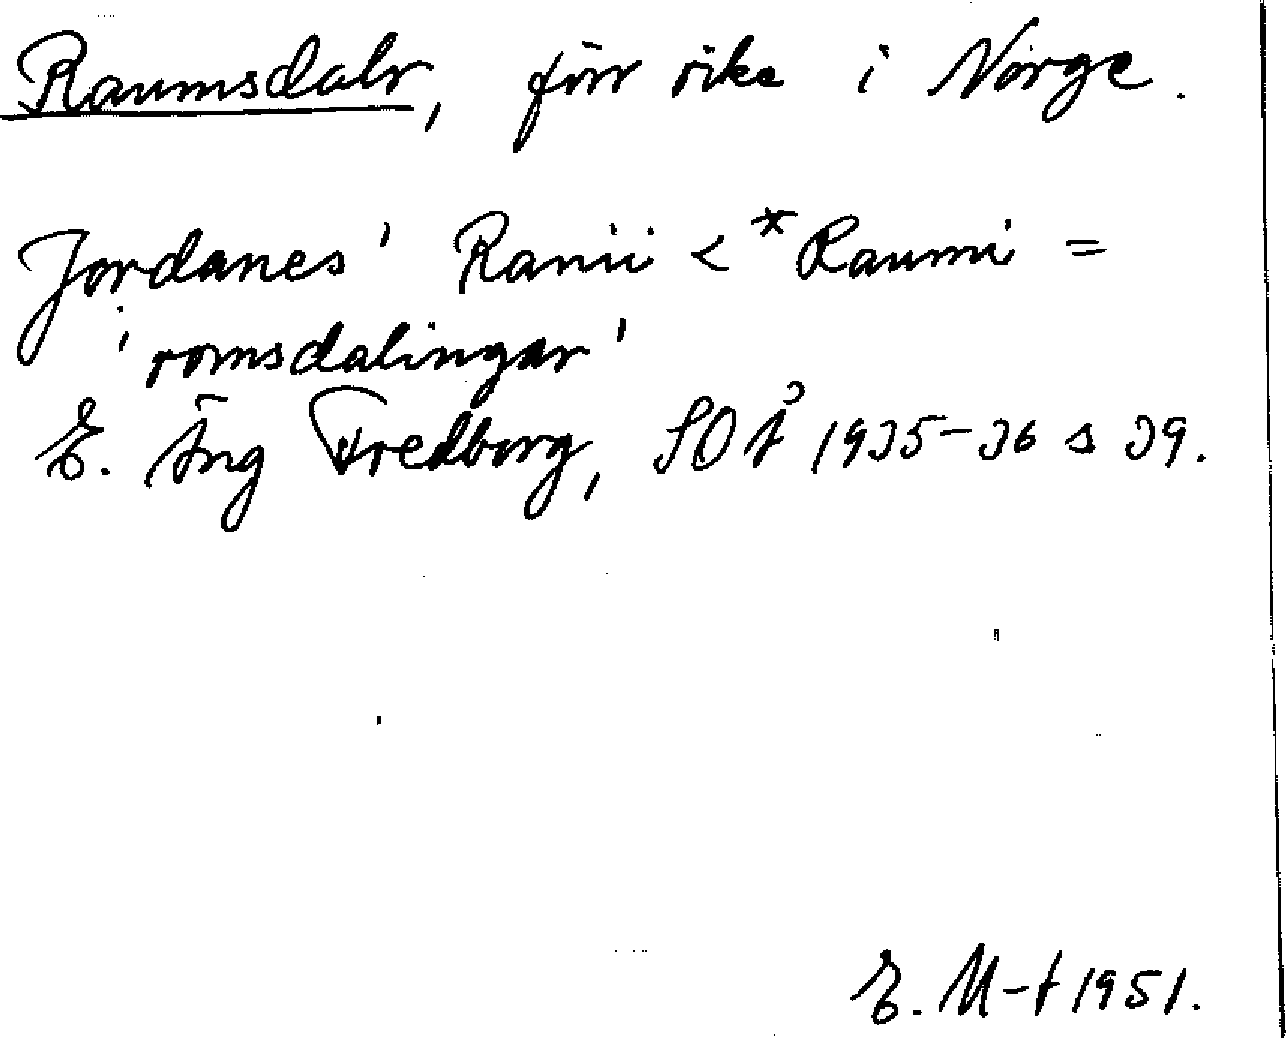 Raumsdalr, förr rike i Norge.
Jordanes' Ranii < *Raumi =
'romsdalingar'
E. Äng Fredborg, SOÅ 1935-36 s 39.
E. M-t 1951.